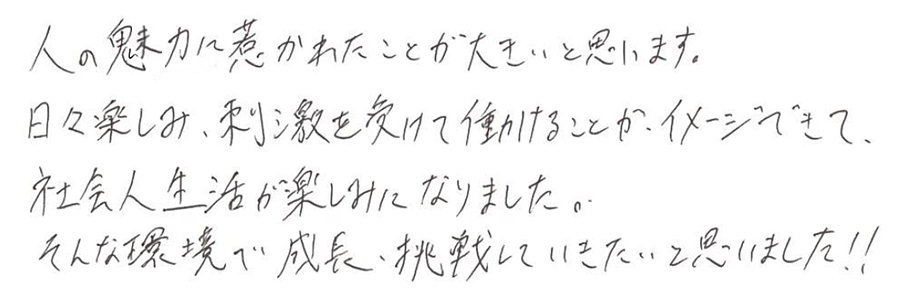 人の魅力に惹かれたことが大きいと思います。
日々楽しみ、刺激を受けて働けることが、イメージできて、
社会人生活が楽しみになりました。
そんな環境で成長、挑戦していきたいと思いました!!